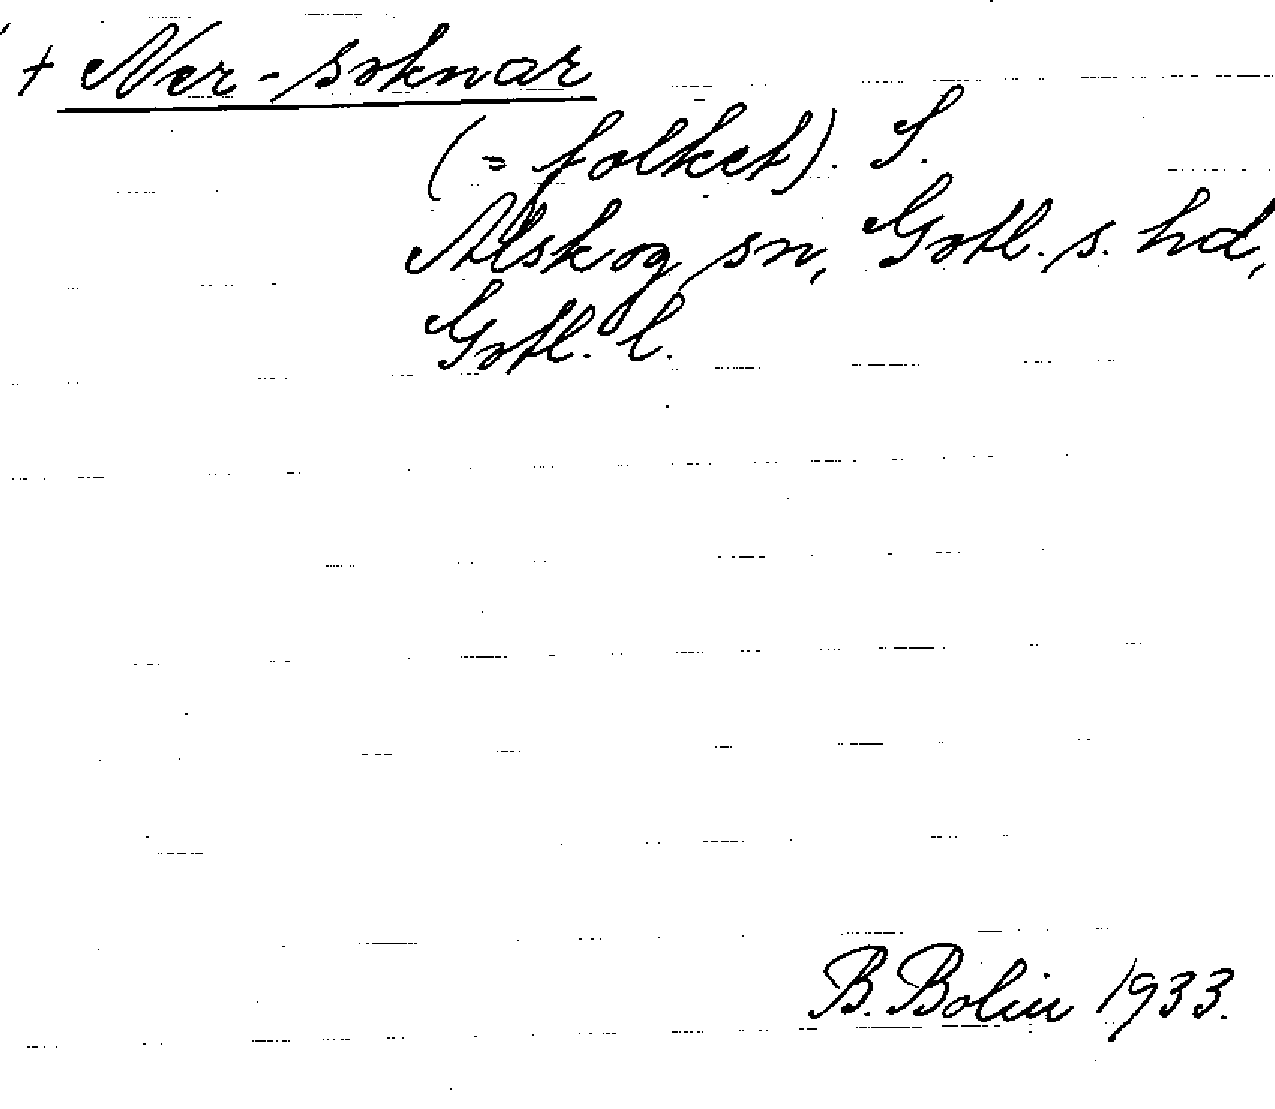 + Ner-soknar
(= folket). S.
Alskog sn, Gotl. s. hd,
Gotl. l.
B. Bolin 1933.